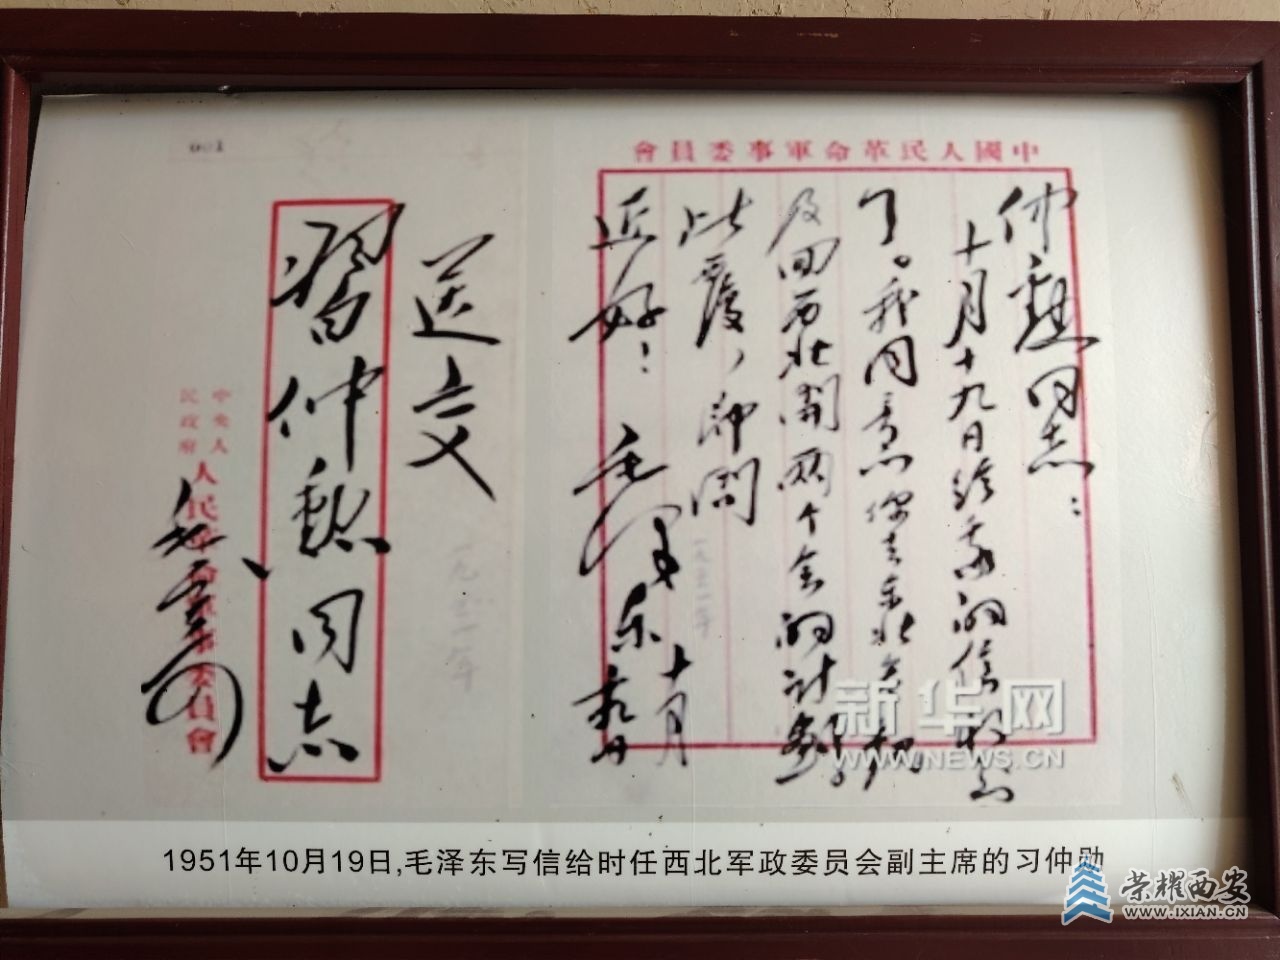 中國人民革命軍事委員會
仲勲同志：
十月十九日给我的信收到
了。我同意你去东北
及回西北開兩个会的计划。
此覆，即問
近好！ 毛泽东
十月
一九五一年
001
送交
習仲勲同志
一九五一年
中央人民政府人民革命軍事委員會
新华网
WWW.NEWS.CN
1951年10月19日,毛泽东写信给时任西北军政委员会副主席的习仲勋
荣耀西安
WWW.IXIAN.CN